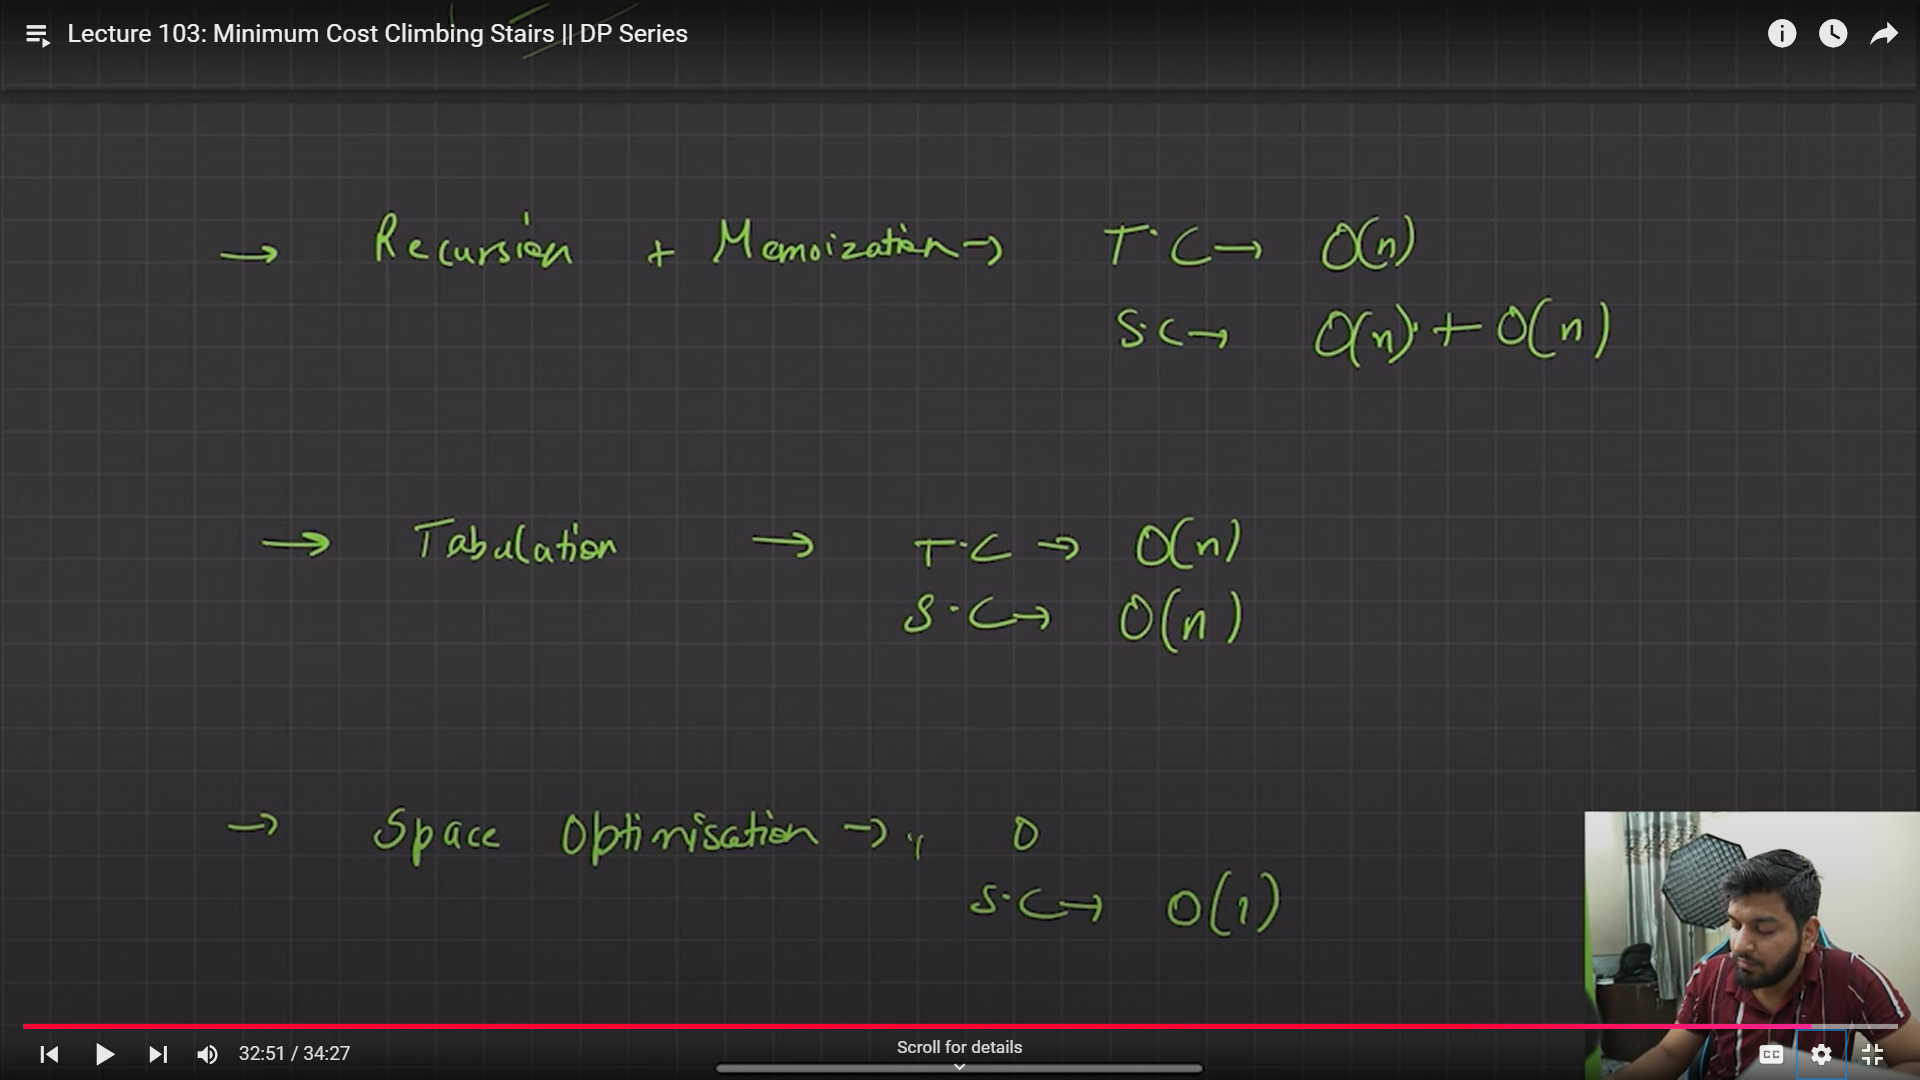 Lecture 103: Minimum Cost Climbing Stairs || DP Series
→ Recursion + Memoization → T.C → O(n)
S.C → O(n) + O(n)
→ Tabulation → T.C → O(n)
S.C → O(n)
→ Space Optimisation → O
S.C → O(1)
32:51 / 34:27
Scroll for details
CC